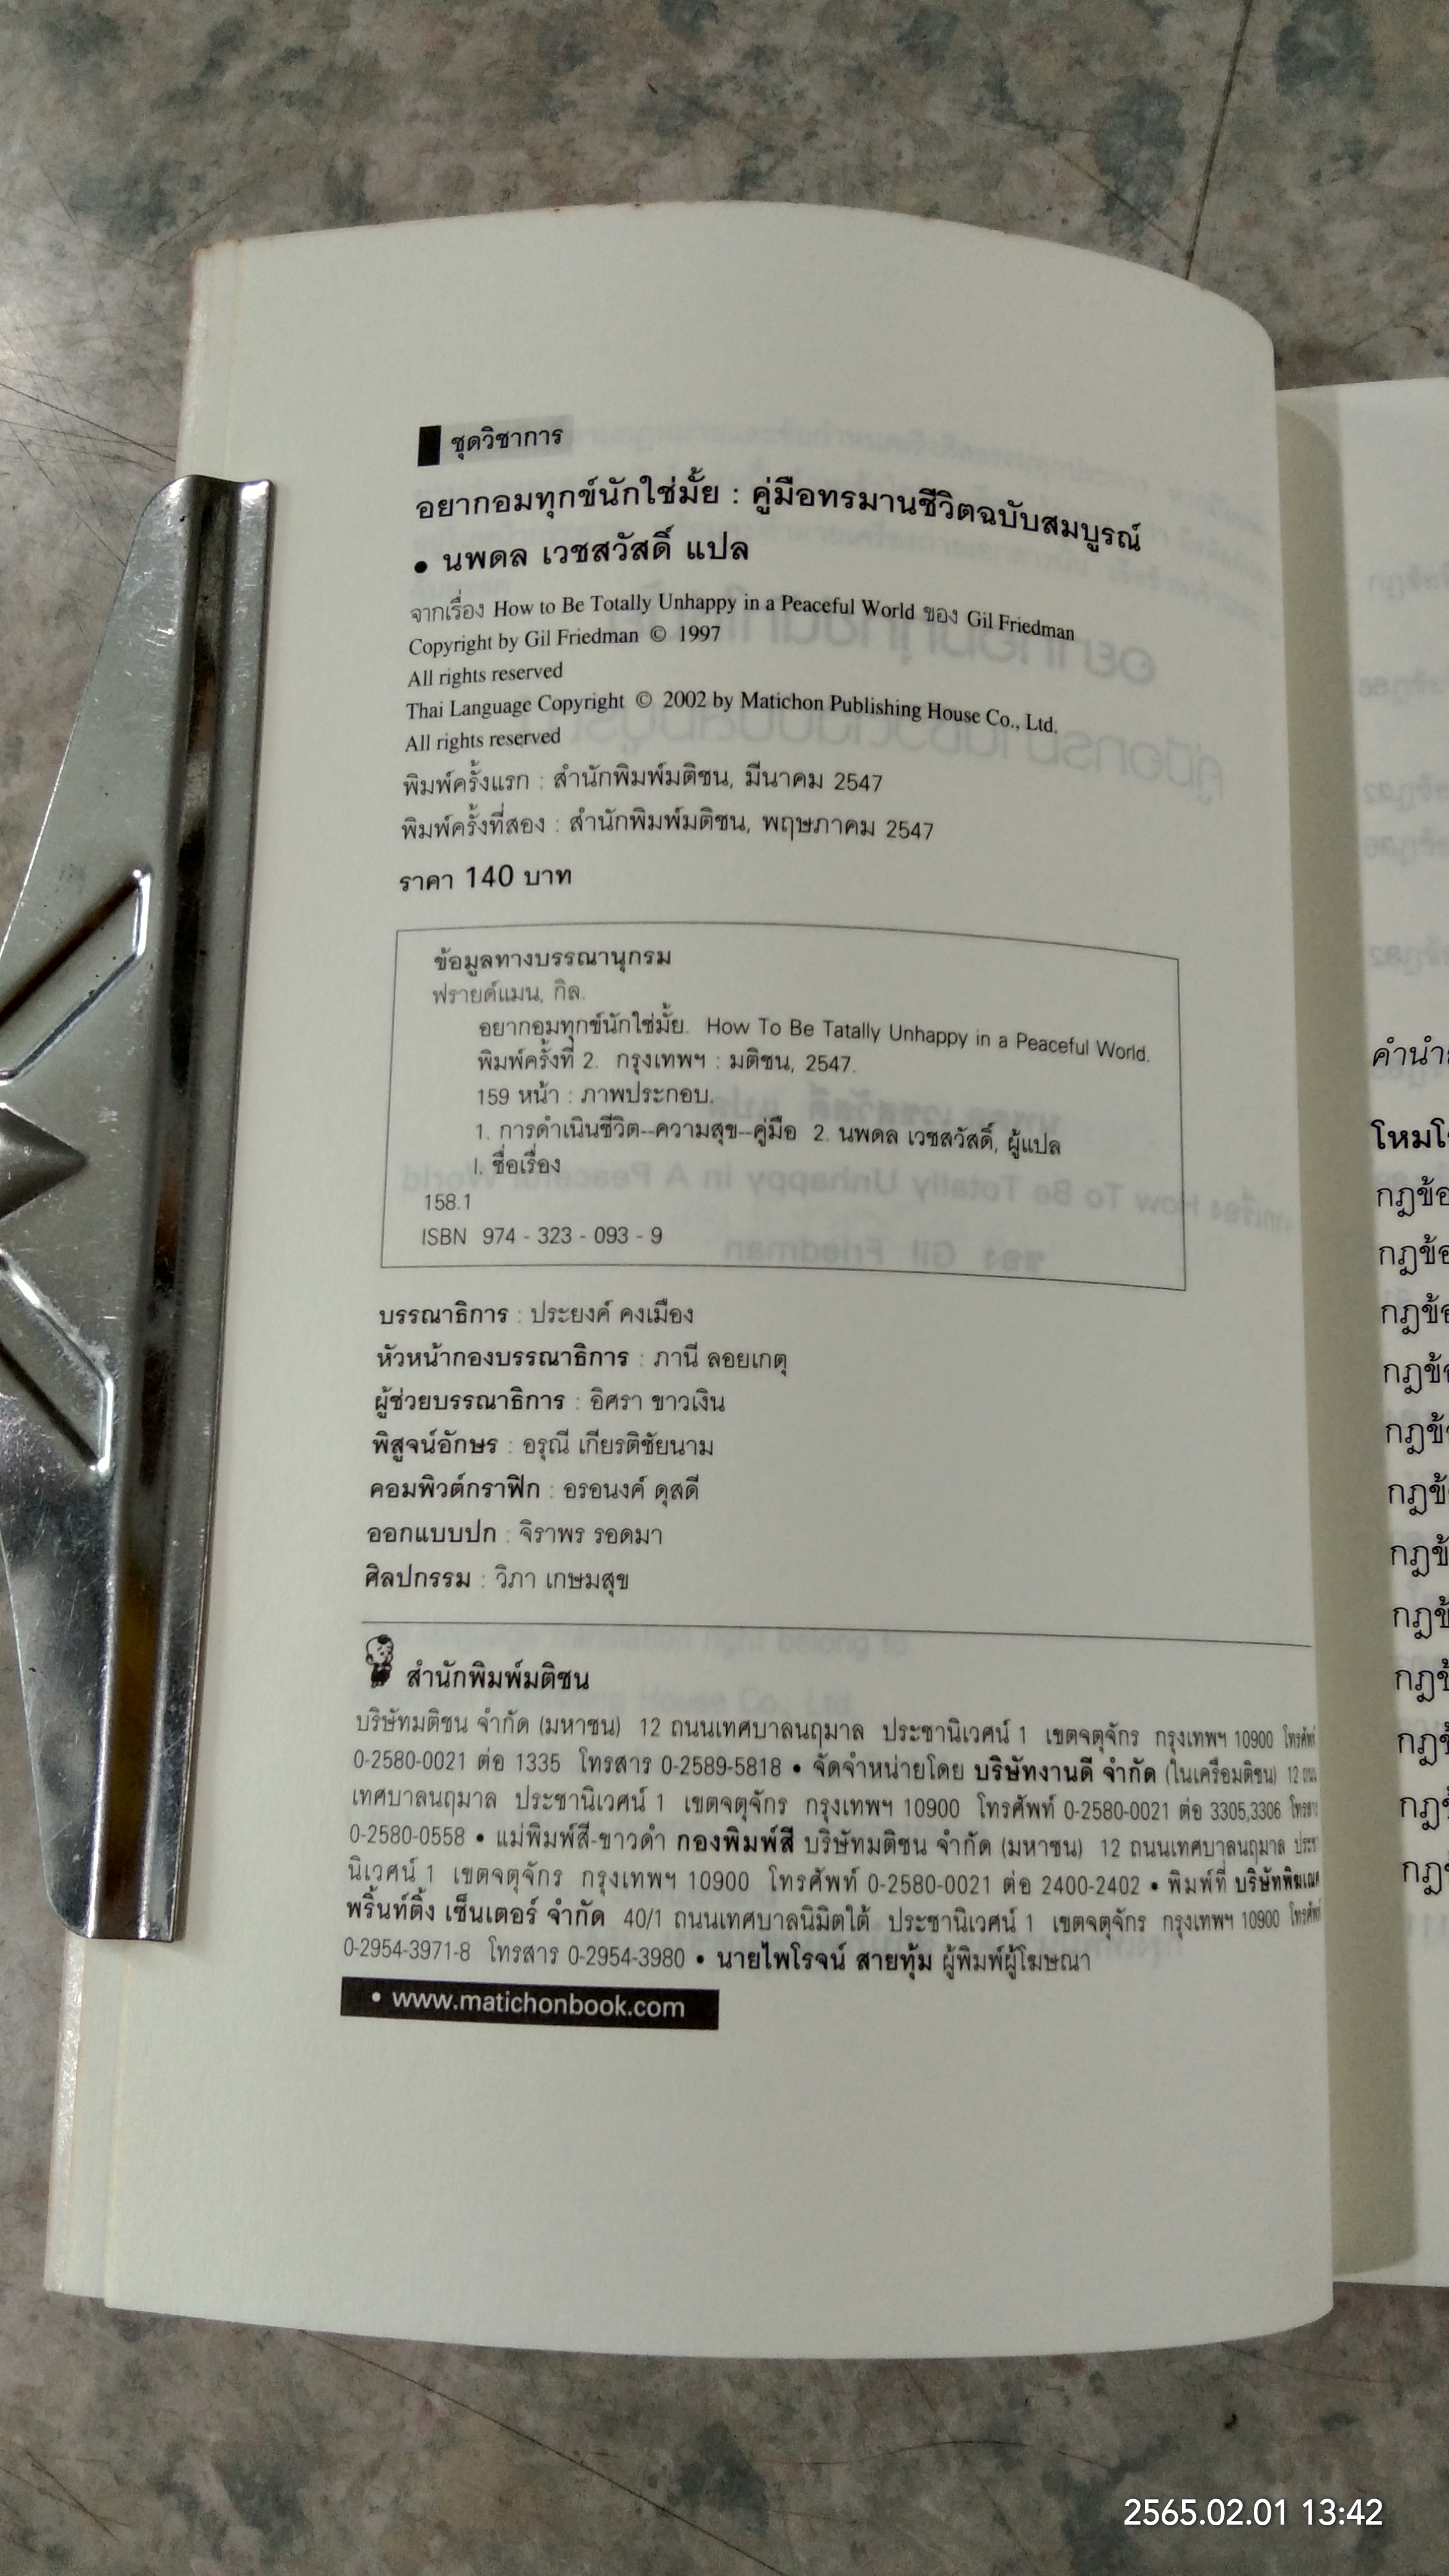 ชุดวิชาการ
อยากอมทุกข์นักใช่มั้ย : คู่มือทรมานชีวิตฉบับสมบูรณ์
• นพดล เวชสวัสดิ์ แปล
จากเรื่อง How to Be Totally Unhappy in a Peaceful World ของ Gil Friedman
Copyright by Gil Friedman © 1997
All rights reserved
Thai Language Copyright © 2002 by Matichon Publishing House Co., Ltd.
All rights reserved
พิมพ์ครั้งแรก : สำนักพิมพ์มติชน, มีนาคม 2547
พิมพ์ครั้งที่สอง : สำนักพิมพ์มติชน, พฤษภาคม 2547
ราคา 140 บาท
ข้อมูลทางบรรณานุกรม
ฟรายด์แมน, กิล.
อยากอมทุกข์นักใช่มั้ย. How To Be Tatally Unhappy in a Peaceful World.
พิมพ์ครั้งที่ 2. กรุงเทพฯ : มติชน, 2547.
159 หน้า : ภาพประกอบ.
1. การดำเนินชีวิต--ความสุข--คู่มือ 2. นพดล เวชสวัสดิ์, ผู้แปล
I. ชื่อเรื่อง
158.1
ISBN 974 - 323 - 093 - 9
บรรณาธิการ : ประยงค์ คงเมือง
หัวหน้ากองบรรณาธิการ : ภานี ลอยเกตุ
ผู้ช่วยบรรณาธิการ : อิศรา ขาวเงิน
พิสูจน์อักษร : อรุณี เกียรติชัยนาม
คอมพิวต์กราฟิก : อรอนงค์ ดุสดี
ออกแบบปก : จิราพร รอดมา
ศิลปกรรม : วิภา เกษมสุข
สำนักพิมพ์มติชน
บริษัทมติชน จำกัด (มหาชน) 12 ถนนเทศบาลนฤมาล ประชานิเวศน์ 1 เขตจตุจักร กรุงเทพฯ 10900 โทรศัพท์
0-2580-0021 ต่อ 1335 โทรสาร 0-2589-5818 • จัดจำหน่ายโดย บริษัทงานดี จำกัด (ในเครือมติชน) 12 ถนน
เทศบาลนฤมาล ประชานิเวศน์ 1 เขตจตุจักร กรุงเทพฯ 10900 โทรศัพท์ 0-2580-0021 ต่อ 3305,3306 โทรสาร
0-2580-0558 • แม่พิมพ์สี-ขาวดำ กองพิมพ์สี บริษัทมติชน จำกัด (มหาชน) 12 ถนนเทศบาลนฤมาล ประชา
นิเวศน์ 1 เขตจตุจักร กรุงเทพฯ 10900 โทรศัพท์ 0-2580-0021 ต่อ 2400-2402 • พิมพ์ที่ บริษัทพิฆเณศ
พริ้นท์ติ้ง เซ็นเตอร์ จำกัด 40/1 ถนนเทศบาลนิมิตใต้ ประชานิเวศน์ 1 เขตจตุจักร กรุงเทพฯ 10900 โทรศัพท์
0-2954-3971-8 โทรสาร 0-2954-3980 • นายไพโรจน์ สายทุ้ม ผู้พิมพ์ผู้โฆษณา
• www.matichonbook.com
2565.02.01 13:42